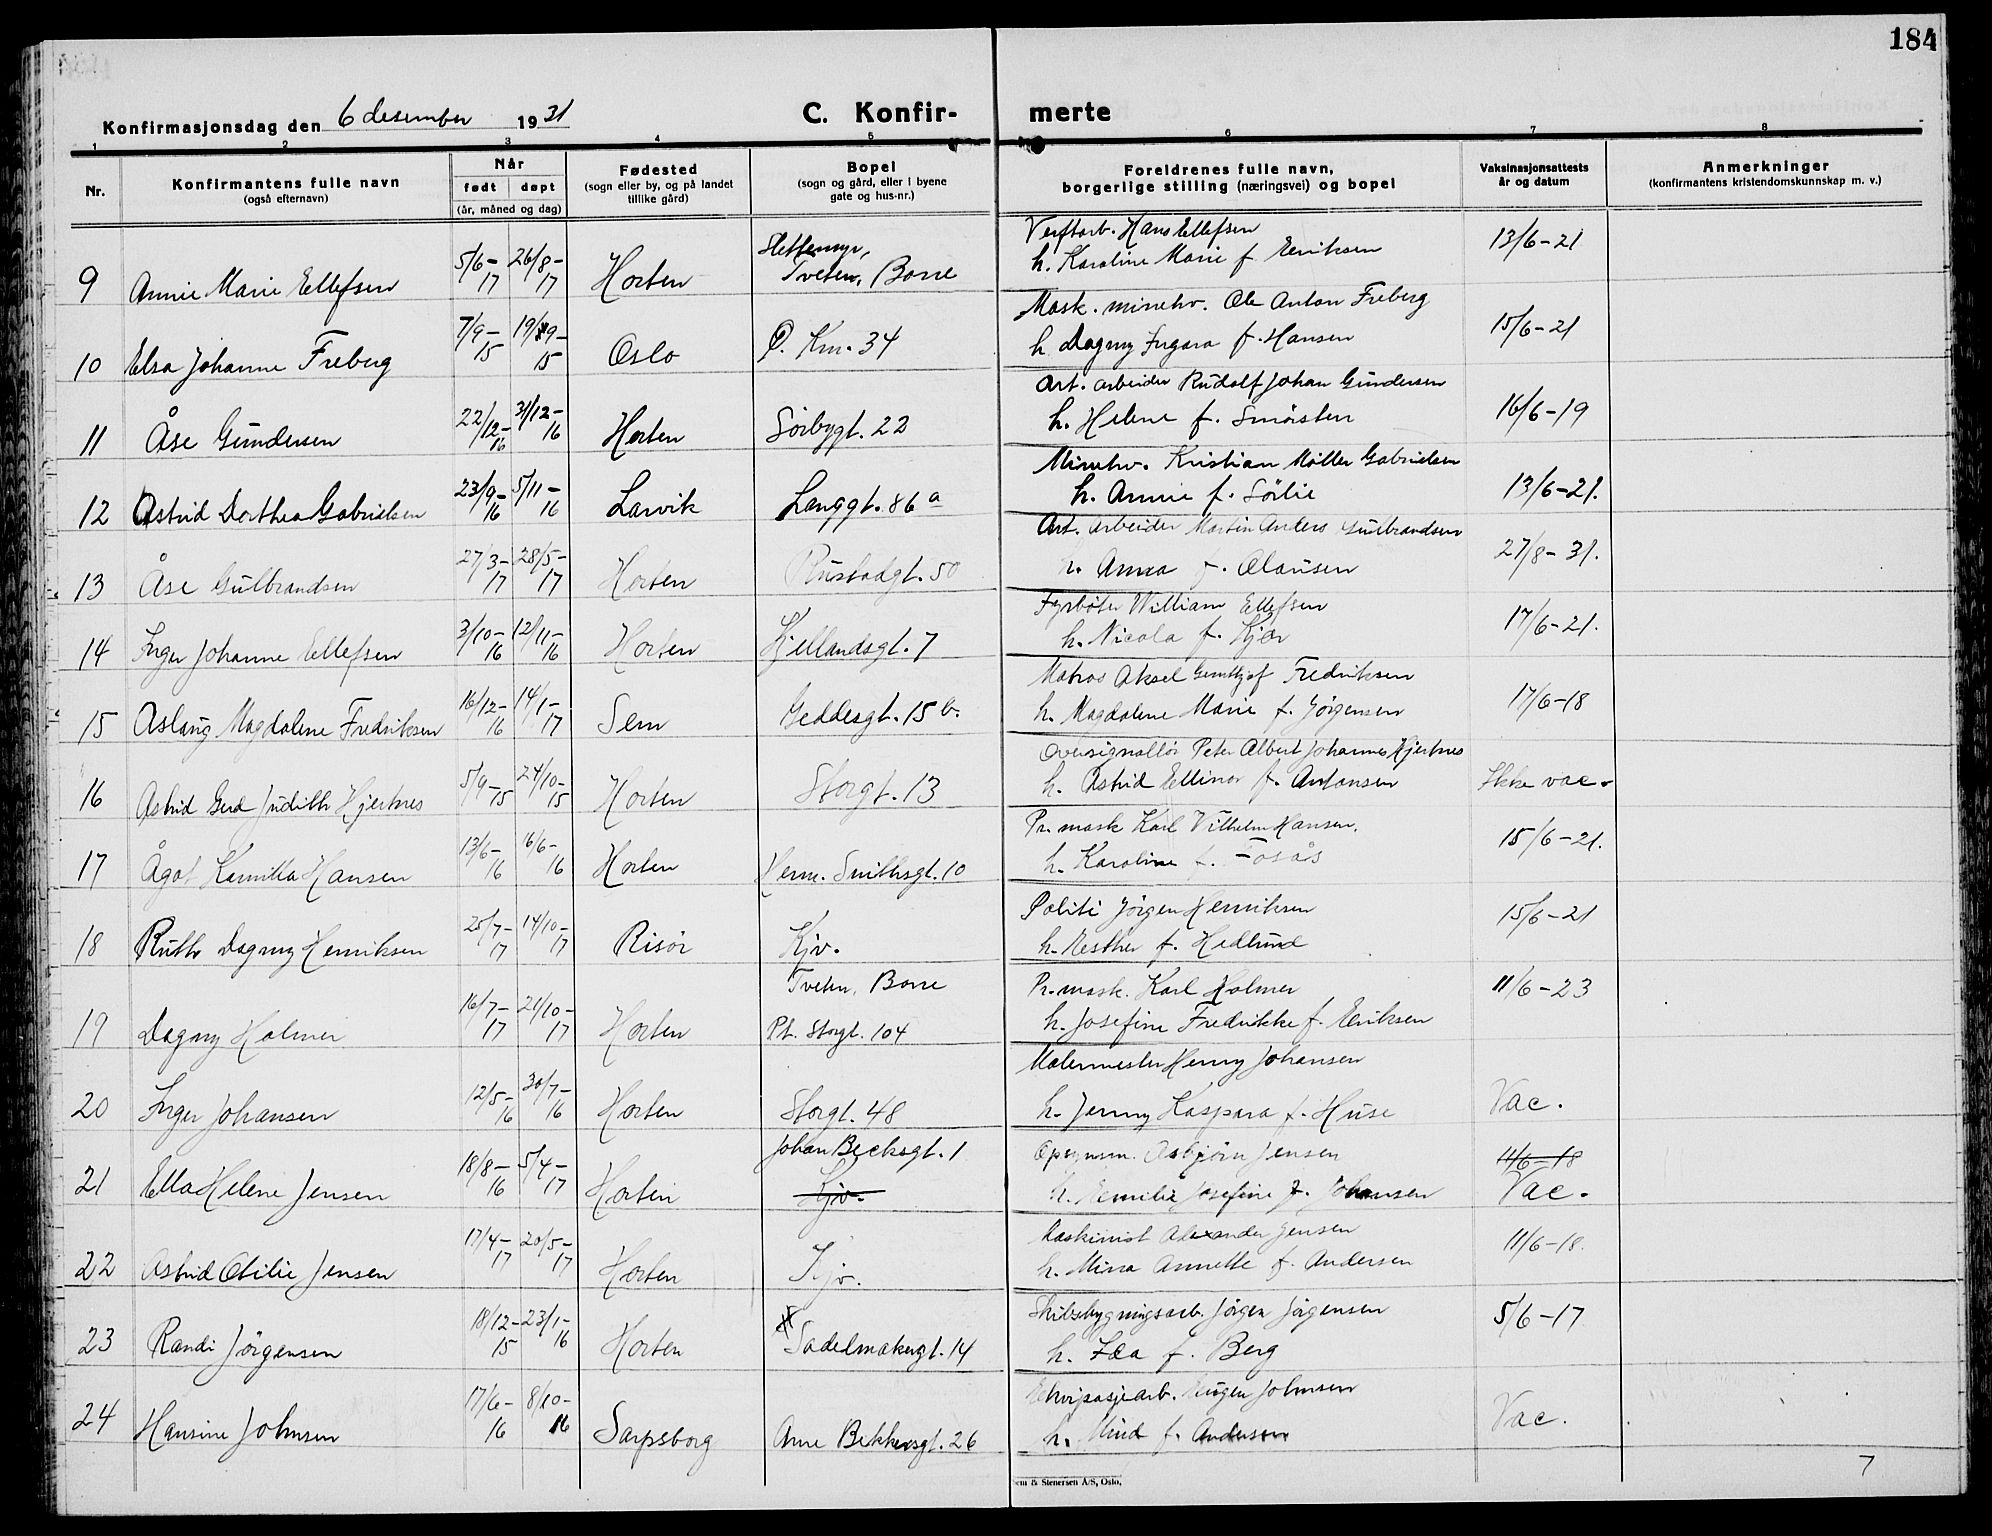 184
Konfirmasjonsdag den 6 desember 1931 C. Konfir- merte
1 2 3 4 5 6 7 8
Nr. Konfirmantens fulle navn (også efternavn) Når født døpt (år, måned og dag) Fødested (sogn eller by, og på landet tillike gård) Bopel (sogn og gård, eller i byene gate og hus-nr.) Foreldrenes fulle navn, borgerlige stilling (næringsvei) og bopel Vaksinasjonsattests år og datum Anmerkninger (konfirmantens kristendomskunnskap m. v.)
9 Annie Marie Ellefsen 5/6-17 26/8-17 Horten Slettemyr, Tveten, Borre Verftarb. Hans Ellefsen 13/6-21
h. Karoline Marie f. Eeriksen
10 Elsa Johanne Freberg 7/9-15 19/9-15 Oslo Km. 34 Mask. minehv. Ole Anton Freberg 15/6-21
h. Dagny Ingara f. Hansen
11 Åse Gundersen 22/12-16 31/12-16 Horten Sörbygt. 22 Art. arbeider Rudolf Johan Gundersen 16/6-19
h. Helene f. Smörsten
12 Astrid Dorthea Gabrielsen 23/9-16 5/11-16 Larvik Langgt. 86 a Minehv. Kristian Møller Gabrielsen 13/6-21.
h. Annie f. Sörlie
13 Åse Gulbrandsen 27/3-17 28/5-17 Horten Rustadgt. 50 Art. arbeider Martin Anders Gulbrandsen 27/8-31.
h. Anna f. Olausen
14 Inger Johanne Ellefsen 3/10-16 12/11-16 Horten Kjellandsgt. 7 Fyrbøter William Ellefsen 17/6-21.
h. Nicola f. Kjær
15 Aslaug Magdalene Fredriksen 16/12-16 14/1-17 Sem Geddesgt. 15 b. Matros Aksel Fredriksen 17/6-18
h. Magdalene Marie f. Jörgensen
16 Astrid Gerd Judith Hjertnes 5/9-15 24/10-15 Horten Storgt. 13 Oversignallör Peter Albert Johannes Hjertnes
h. Astrid Ellinor f. Antonsen Ikke vac.
17 Ågot Kamilla Hansen 13/6-16 6/6-16 Horten Herm. Smithsgt. 10 Pr. mask Karl Vilhelm Hansen. 15/6-21.
h. Karoline f. Fosås
18 Ruth Dagny Henriksen 25/7-17 14/10-17 Risör Kjv. Politi Jörgen Henriksen 15/6-21
h. Eesther f. Hedlund
19 Dagny Holmer 16/7-17 21/10-17 Horten Tveten, Borre Pt. Storgt. 104 Pr. mask. Karl Holmer 11/6-23
h. Josefine Fredrikke f. Eriksen
20 Inger Johansen 12/5-16 30/7-16 Horten Storgt. 48 Malermester Henry Johansen
h. Jenny Kaspara f. Huse Vac.
21 Ella Helene Jensen 18/8-16 5/4-17 Horten Johan Becksgt. 1 Kjv. Opsynsm. Asbjörn Jensen 11/6-18
h. Eemilie Josefine f. Johansen Vac.
22 Astrid Otilie Jensen 17/4-17 20/5-17 Horten Kjv. Maskinist Alexander Jensen 11/6-18.
h. Mina Annette f. Andersen
23 Randi Jörgensen 18/12-15 23/1-16 Horten Sadelmakergt. 14 Skibsbygningsarb. Jörgen Jörgensen 5/6-17
h. Ida f. Berg
24 Hansine Johnsen 17/6-16 8/10-16 Sarpsborg Arne Bekkersgt. 26 Eekvipasjearb. Eugen Johnsen Vac.
h. f. Andersen
7
Sem & Stenersen A/S, Oslo,